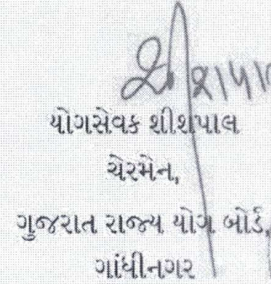 યોગસેવક શીશપાલ
ચેરમેન,
ગુજરાત રાજ્ય યોગ બોર્ડ,
ગાંધીનગર